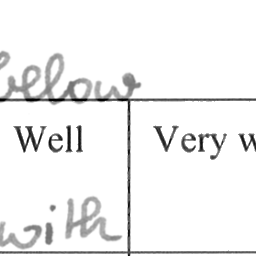 below
Well Very w
with